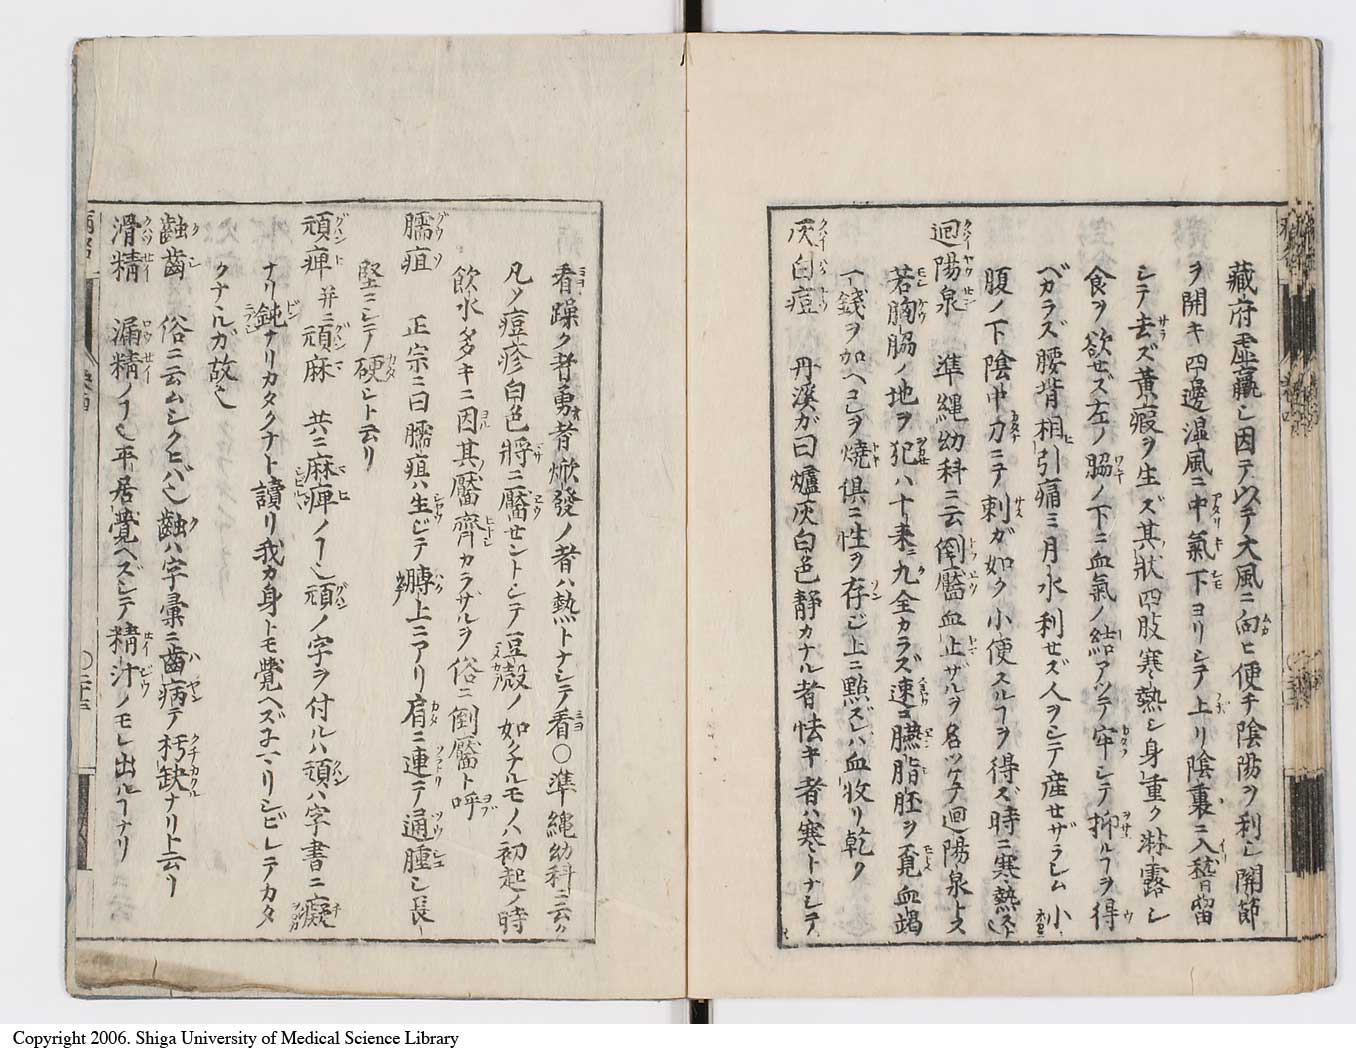 藏府虚羸シ因テウチ大風ニ向ヒ便チ陰陽ヲ利シ開節
ヲ開キ四邊温風ニ中氣下ヨリシテ上リ陰裏ニ入稽留
シテ去ズ黄瘕ヲ生ズ其状四肢寒熱シ身重ク淋露シ
食ヲ欲セズ左ノ脇ノ下ニ血氣ノ結アツテ牢シテ抑ルヲ得
ベカラズ腰背相引痛ミ月水利セズ人ヲシテ産セザラシム小
腹ノ下陰中カニテ刺ガ如ク小便スルヿヲ得ズ時ニ寒熱スト
迴陽泉 準縄幼科ニ云倒靨血止ザルヲ名ツケテ迴陽泉トス
若胸脇ノ地ヲ犯ハ十来ニ九全カラズ速ニ臙脂胚ヲ覓血竭
一錢ヲ加ヘコレヲ燒倶ニ性ヲ存シ上ニ點ズレバ血收リ乾ク
灰白痘 丹溪ガ曰爐灰白色靜カナル者怯キ者ハ寒トナシテ
看躁ク者勇者焮發ノ者ハ熱トナシテ看〇準縄幼科ニ云ク
凡ソ痘疹白色將ニ靨セントシテ豆殼ノ如クナルモノハ初起ノ時
飲水多キニ因其靨齊カラザルヲ俗ニ倒靨ト呼ブ
臑疽 正宗ニ曰臑疽ハ生ジテ膊上ニアリ肩ニ連テ通腫シ長
堅ニシテ硬シト云リ
頑痺 并ニ頑麻 共ニ麻痺ノヿ也頑ノ字ヲ付ルハ頑ハ字書ニ癡
ナリ鈍ナリカタクナト讀リ我カ身トモ覺ヘズ子マリシビレテカタ
クナナルガ故也
齲齒 俗ニ云ムシクヒバ也齲ハ字彙ニ齒病テ朽缺ナリト云リ
滑精 漏精ノヿ也平居覺ヘズシテ精汁ノモレ出ルヿナリ
Copyright 2006. Shiga University of Medical Science Library